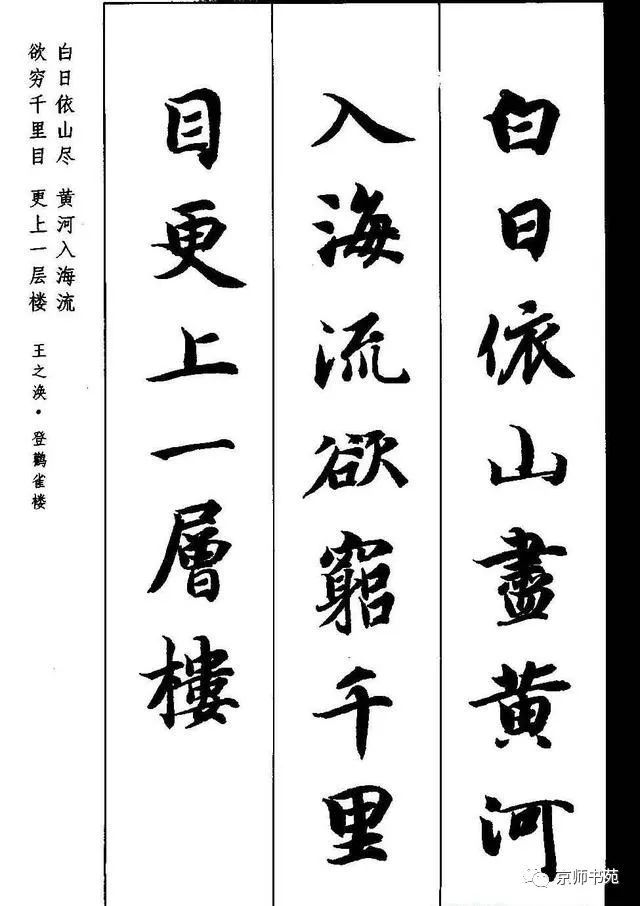 白日依山盡黄河
入海流欲窮千里
目更上一層樓
白日依山尽 黄河入海流
欲穷千里目 更上一层楼 王之涣·登鹳雀楼
京师书苑